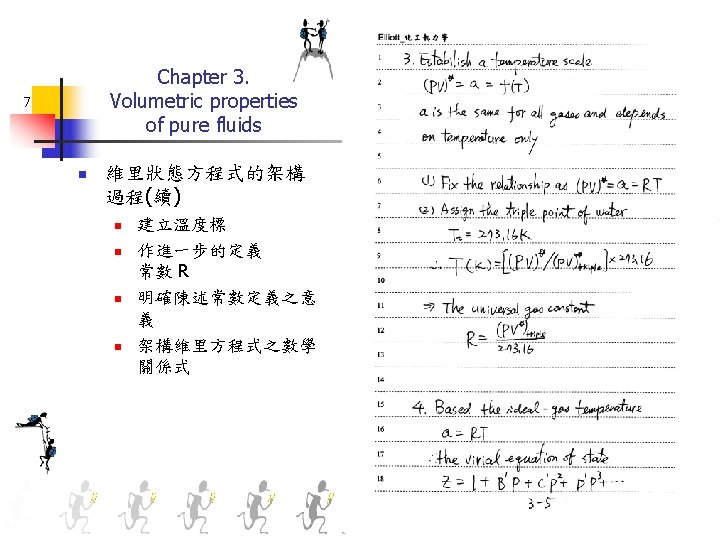 Chapter 3.
Volumetric properties
of pure fluids
7
維里狀態方程式的架構
過程(續)
建立溫度標
作進一步的定義
常數 R
明確陳述常數定義之意
義
架構維里方程式之數學
關係式
Elliott_化工熱力學
1 3. Establish a temperature scale
2 (PV)* = a = f(T)
3 a is the same for all gases and depends
4 on temperature only
5
6 (1) Fix the relationship as (PV)* = a = RT
7 (2) Assign the triple point of water
8 Tt = 273.16K
9 ∴ T(K) = [(PV)*/(PV)*triple] × 273.16
10
11 ⇒ The universal gas constant
12 R = (PV)*triple / 273.16
13
14
15 4. Based the ideal-gas temperature
16 a = RT
17 ∴ the virial equation of state
18 Z = 1 + B'P + C'P² + D'P³ + ···
3-5